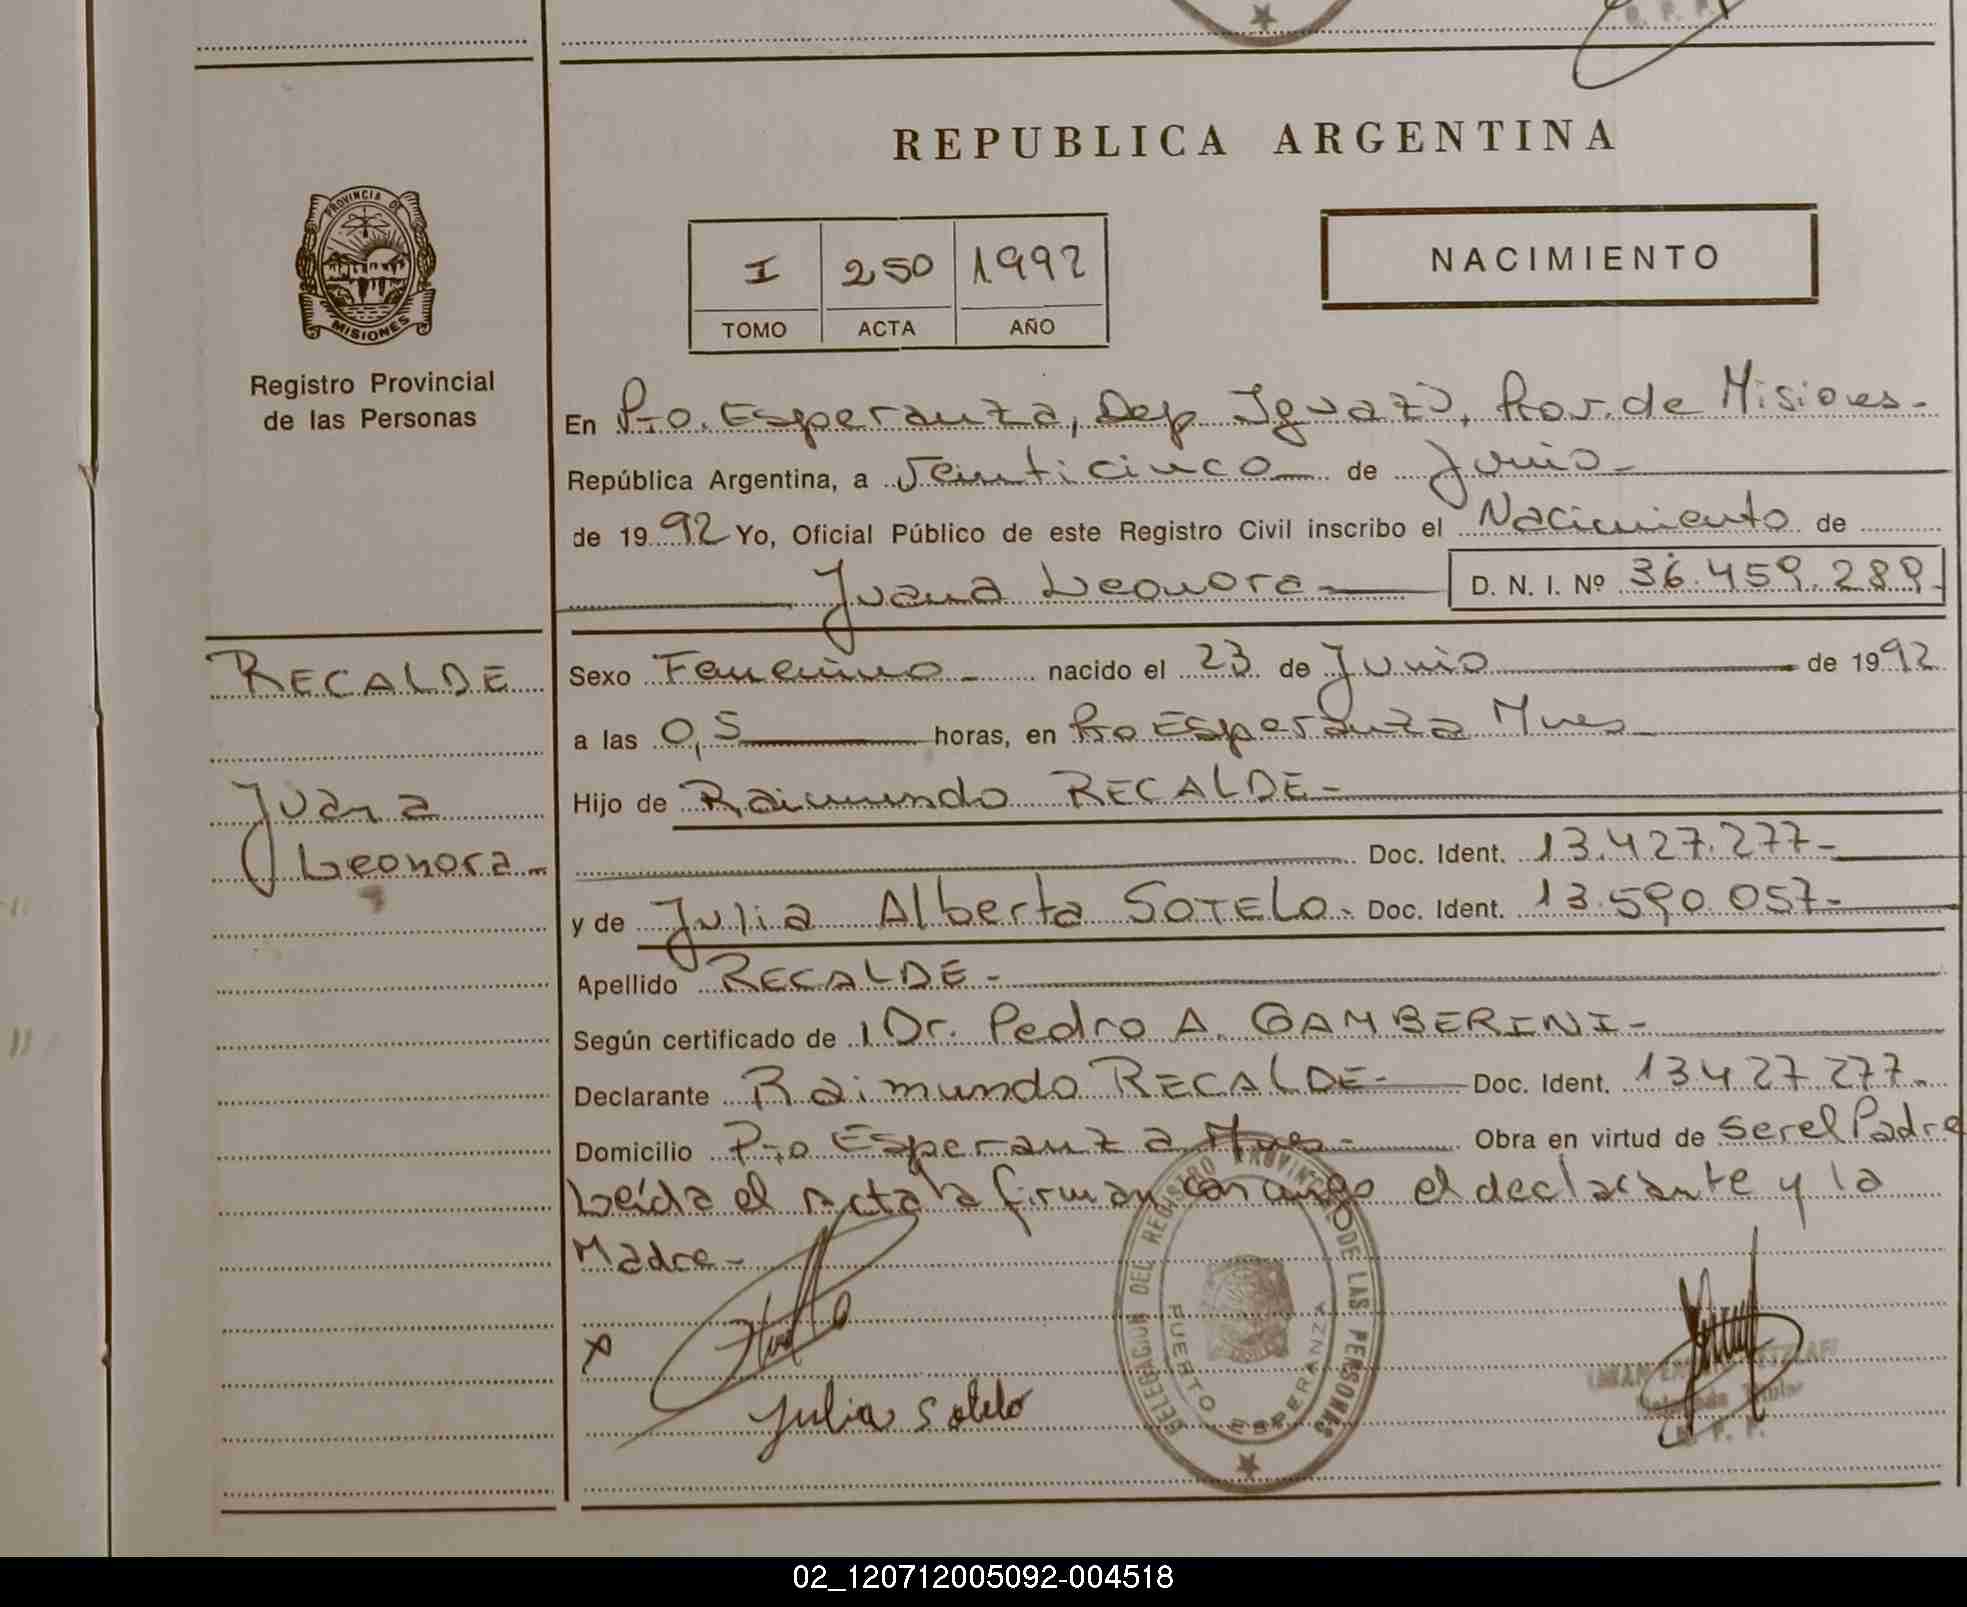 REPUBLICA ARGENTINA
PROVINCIA DE
MISIONES
Registro Provincial
de las Personas
I 250 1992
TOMO ACTA AÑO
NACIMIENTO
En Pto. Esperanza, Dep. Iguazú, Prov. de Misiones-
República Argentina, a Veinticinco de Junio-
de 1992 Yo, Oficial Público de este Registro Civil inscribo el Nacimiento de
Juana Leonora D. N. I. Nº 36.459.289-
RECALDE
Juana
Leonora-
Sexo Femenino - nacido el 23 de Junio de 1992
a las 0,5 horas, en Pto Esperanza Mnes
Hijo de Raimundo RECALDE-
Doc. Ident. 13.427.277-
y de Julia Alberta SOTELO- Doc. Ident. 13.590.057-
Apellido RECALDE-
Según certificado de Dr. Pedro A. GAMBERINI-
Declarante Raimundo RECALDE- Doc. Ident. 13.427.277-
Domicilio Pto Esperanza Mnes- Obra en virtud de ser el Padre
Leída el acta la firman conmigo el declarante y la
Madre-
DELEGACION DEL REGISTRO PROVINCIAL DE LAS PERSONAS
PUERTO ESPERANZA
Julia Sotelo
Titular
R. P. P.
02_120712005092-004518